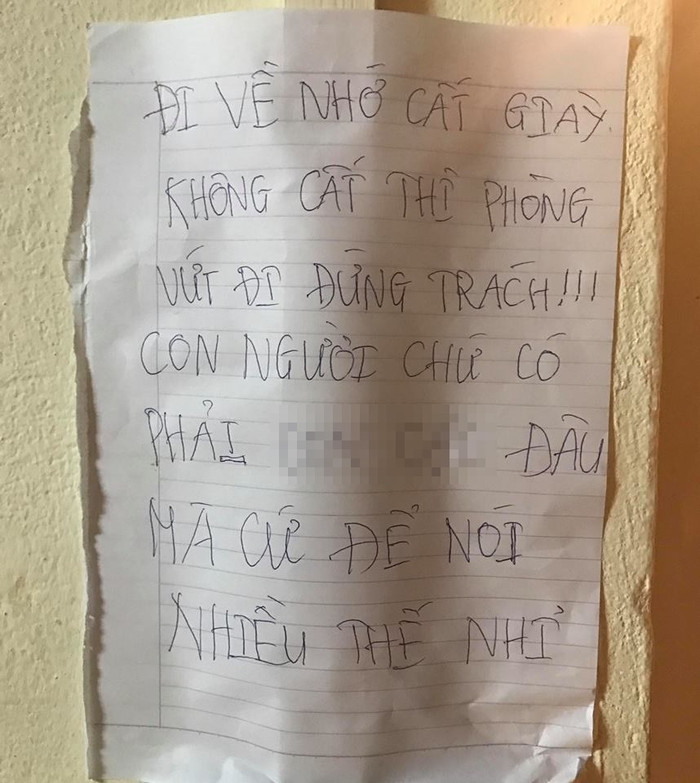 ĐI VỀ NHỚ CẤT GIAỲ.
KHÔNG CẤT THÌ PHÒNG
VỨT ĐI ĐỪNG TRÁCH!!!
CON NGƯỜI CHỨ CÓ
PHẢI ĐÂU
MÀ CỨ ĐỂ NÓI
NHIỀU THẾ NHỈ